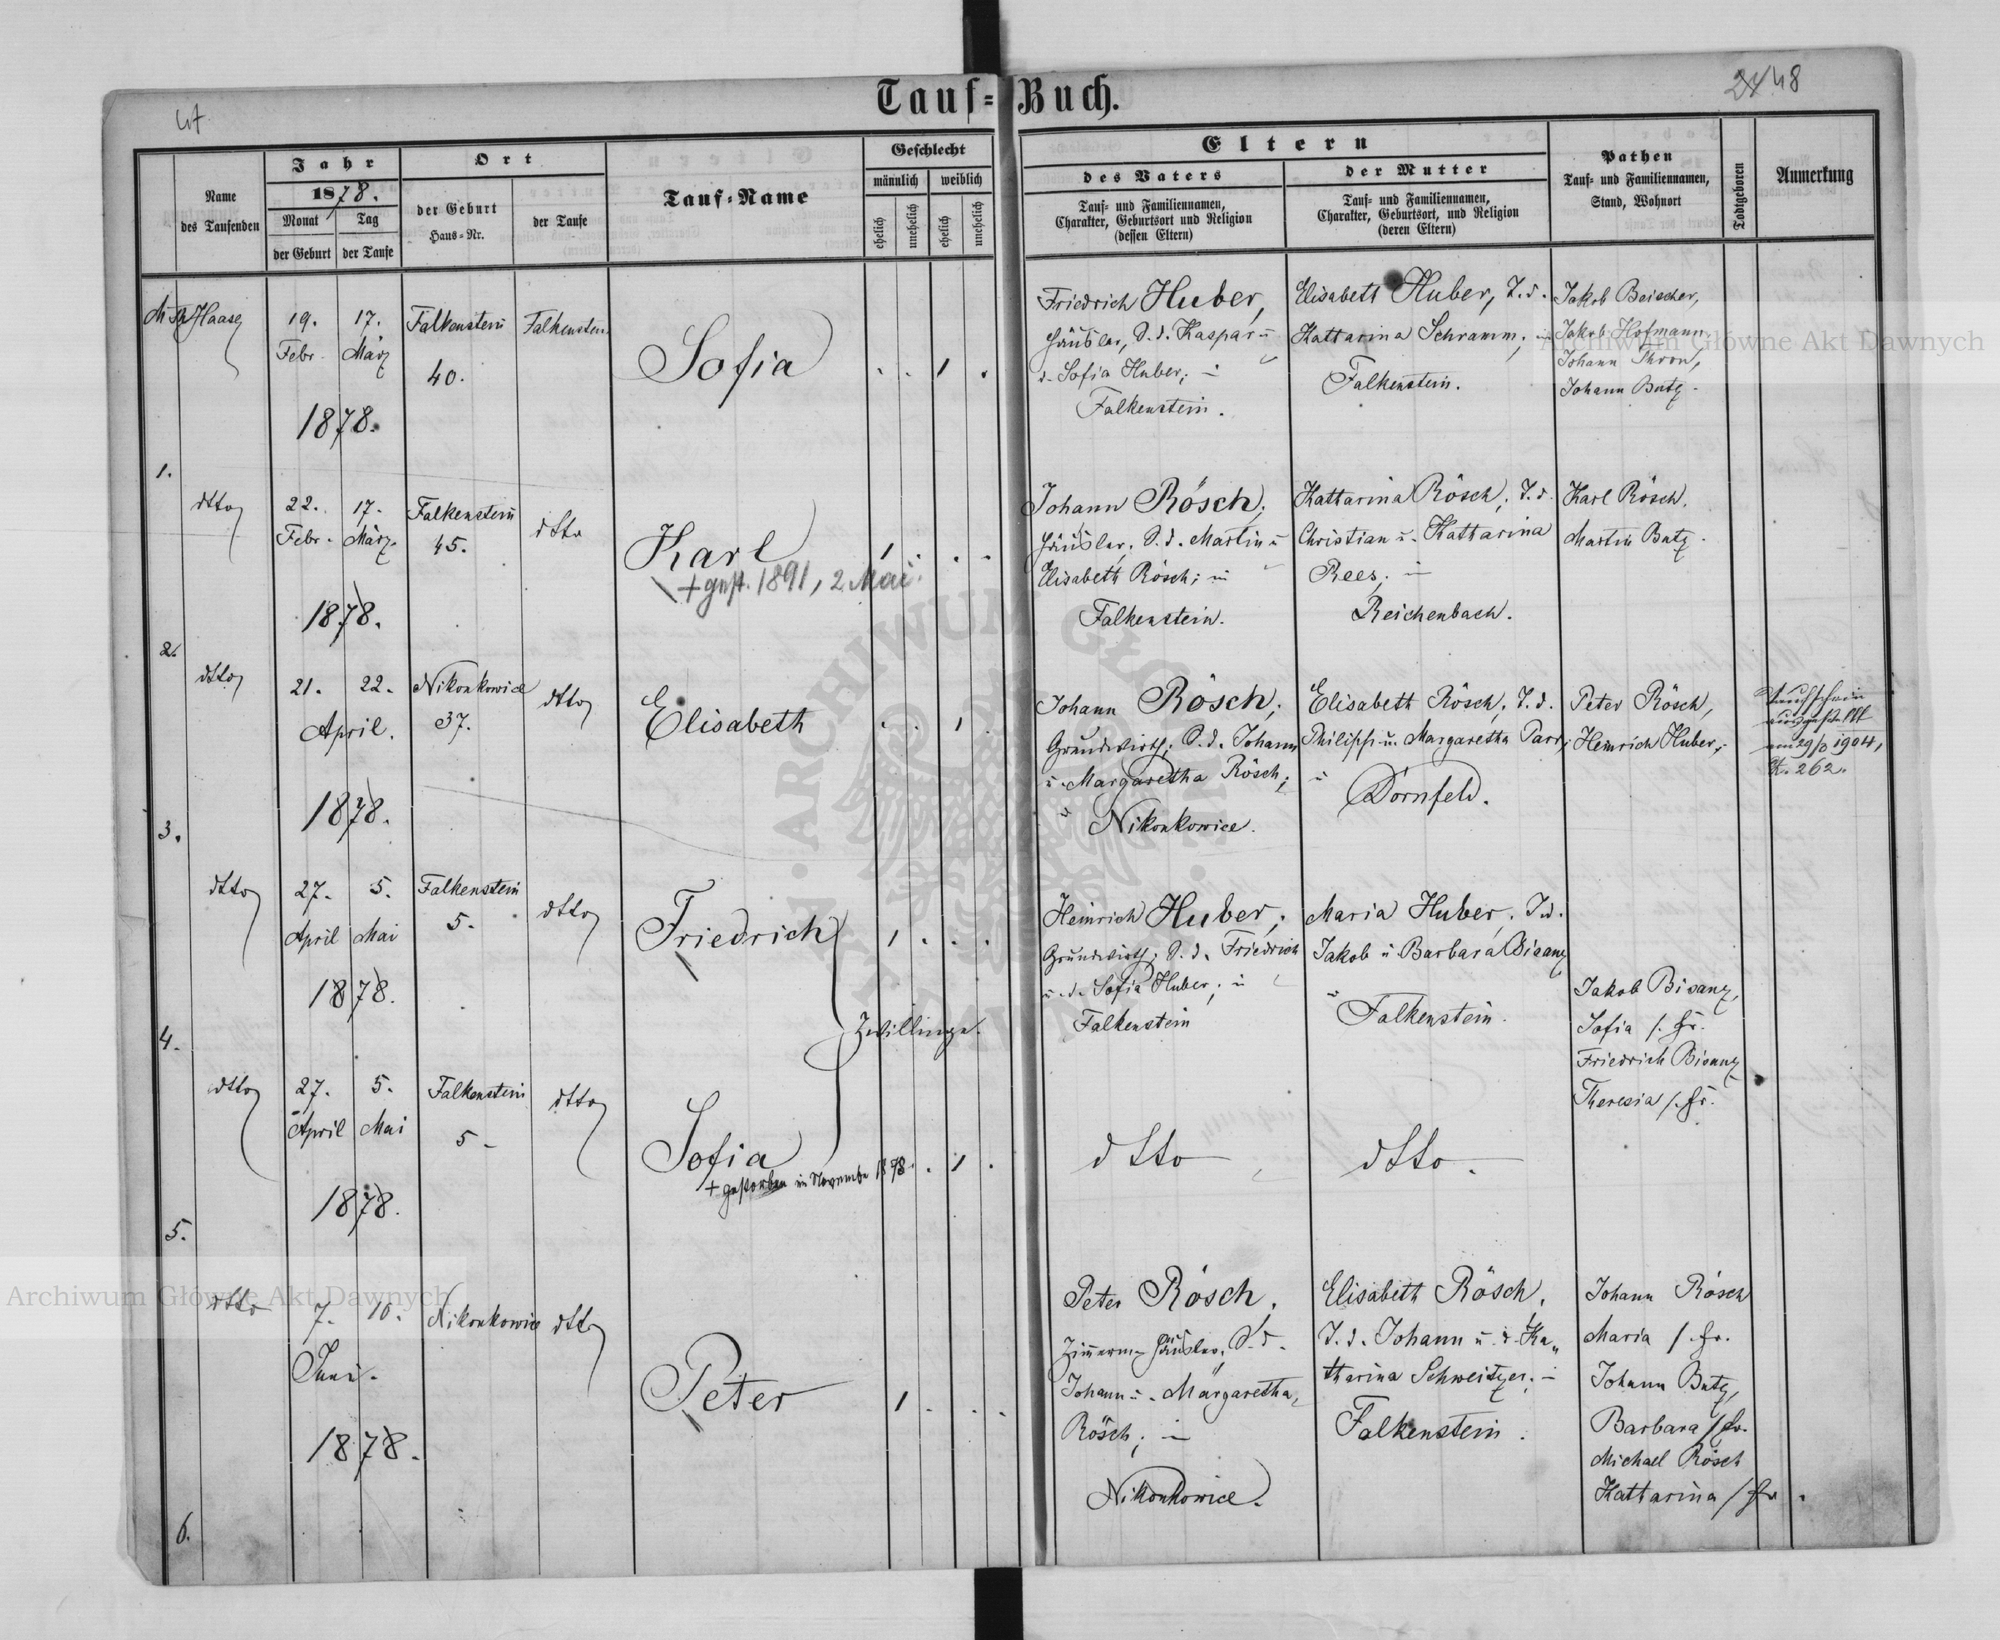 Tauf-Buch.
47
24 48
Name
des Taufenden
Jahr
1878.
Monat
der Geburt
Tag
der Taufe
Ort
der Geburt
Haus-Nr.
der Taufe
Tauf-Name
Geschlecht
männlich
weiblich
ehelich
unehelich
ehelich
unehelich
Eltern
des Vaters
Tauf- und Familiennamen,
Charakter, Geburtsort und Religion
(dessen Eltern)
der Mutter
Tauf- und Familiennamen,
Charakter, Geburtsort, und Religion
(deren Eltern)
Pathen
Tauf- und Familiennamen,
Stand, Wohnort
Todtgeboren
Anmerkung
Haase
19. 17.
Febr. März
1878.
Falkenstein
40.
Falkenstein
Sofia
1
Friedrich Huber,
Häusler, S. d. Kaspar u
d. Sofia Huber; in
Falkenstein.
Elisabeth Huber, T. d.
Kattarina Schramm; in
Falkenstein.
Jakob Beischer,
Jakob Hofmann
Johann
Johann Butz.
1.
dtto
22. 17.
Febr. März.
1878.
Falkenstein
45.
dtto
Karl
+ gest. 1891, 2 Mai.
1
Johann Rösch;
Häusler, S. d. Martin u
Elisabeth Rösch; in
Falkenstein.
Kattarina Rösch; T. d.
Christian u. Kattarina
Rees; in
Reichenbach.
Karl Rösch.
Martin Butz.
2.
dtto
21. 22.
April.
1878.
Nikonkowice
37.
dtto
Elisabeth
1
Johann Rösch;
Grundwirth; S. d. Johann
u. Margaretha Rösch;
in Nikonkowice.
Elisabeth Rösch; T. d.
Philipp u. Margaretha Parr;
in
Dornfeld.
Peter Rösch,
Heinrich Huber,
Taufschein
ausgestellt
am 29/8 1904,
Z. 262.
3.
dtto
27. 5.
April Mai
1878.
Falkenstein
5.
dtto
Friedrich
1
Zwillinge.
Heinrich Huber;
Grundwirth; S. d. Friedrich
u. d. Sofia Huber; in
Falkenstein
Maria Huber; T. d.
Jakob u Barbara Bisanz
in
Falkenstein.
Jakob Bisanz,
Sofia s. Fr.
Friedrich Bisanz
Theresia s. Fr.
4.
dtto
27. 5.
April Mai
1878.
Falkenstein
5
dtto
Sofia
+ gestorben in November 1898.
1
dtto
dtto.
5.
dtto
7. 10.
Juni.
1878.
Nikonkowice
dtto
Peter
1
Peter Rösch,
Zimmerm. Häusler; S. d.
Johann u. Margaretha
Rösch; in
Nikonkowice.
Elisabeth Rösch,
T. d. Johann u. d. Ka„
tharina Schweitzer; in
Falkenstein.
Johann Rösch
Maria s. Fr.
Johann Butz,
Barbara s. Fr.
Michael Rösch
Kattarina s. Fr.
6.
Archiwum Główne Akt Dawnych
Archiwum Główne Akt Dawnych